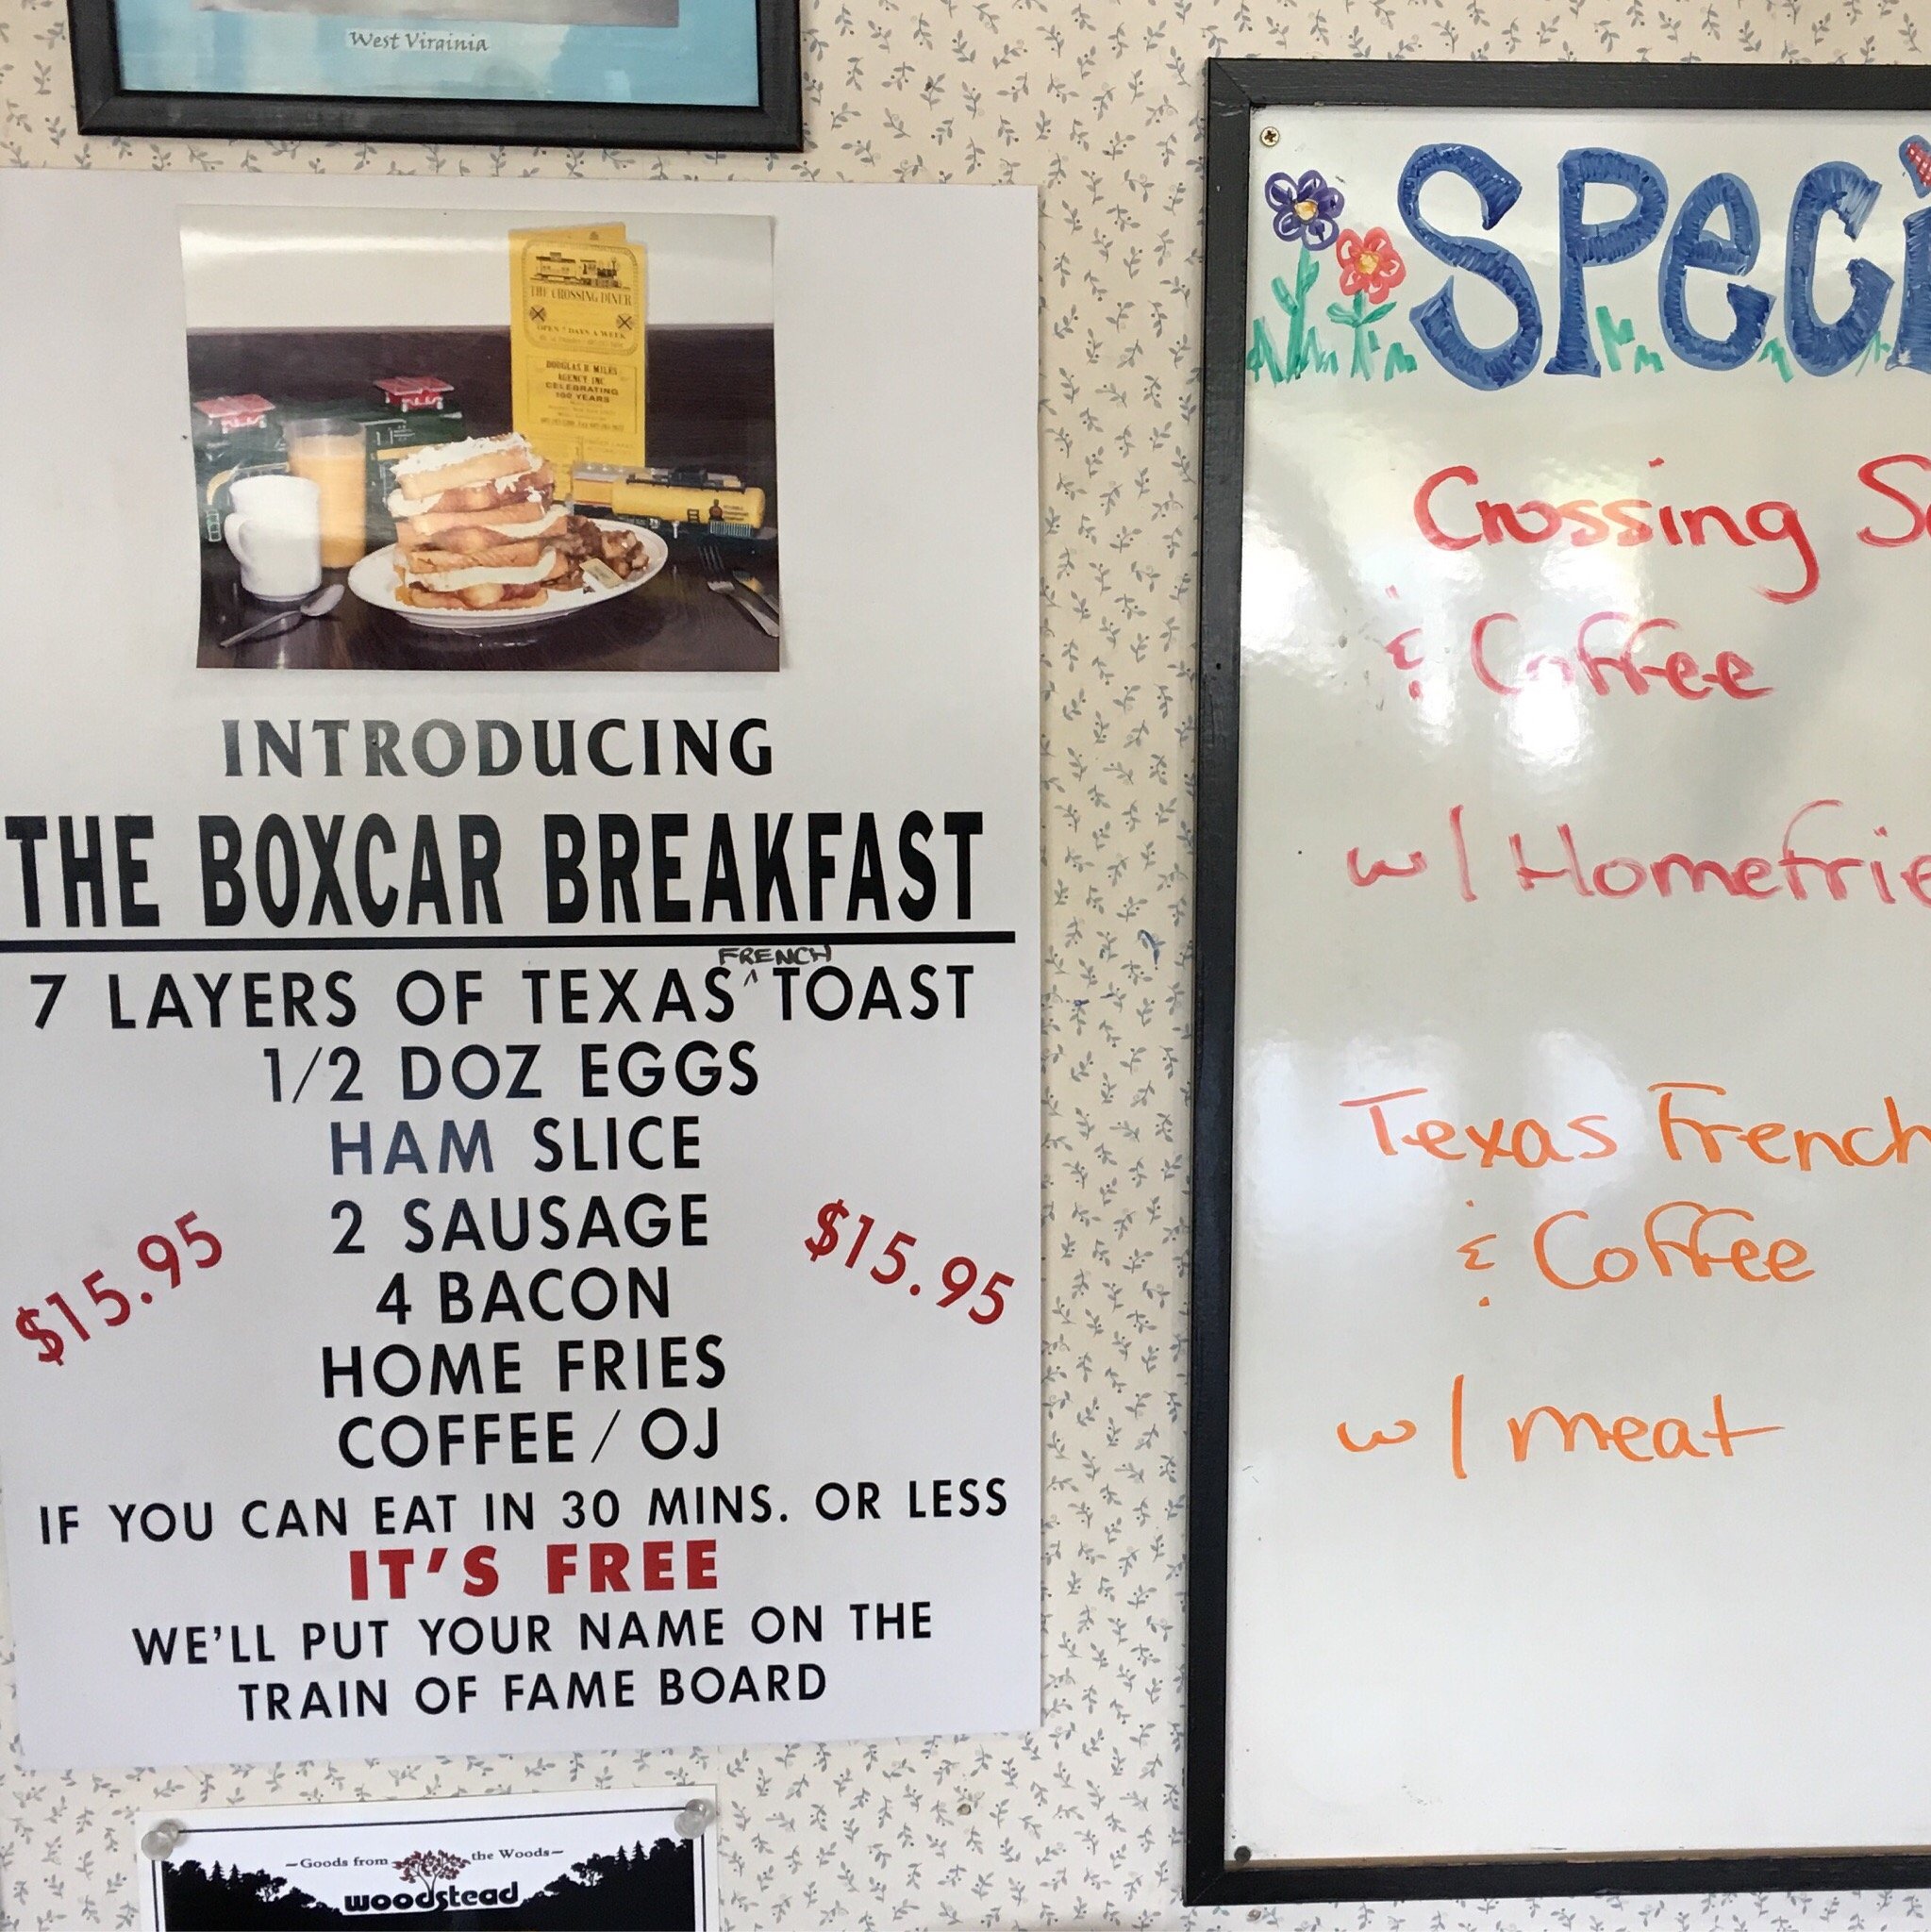 West Virginia
THE CROSSING DINER
OPEN 7 DAYS A WEEK
DOUGLAS B MILES
AGENCY INC
CELEBRATING
100 YEARS
INTRODUCING
THE BOXCAR BREAKFAST
FRENCH
7 LAYERS OF TEXAS ^ TOAST
1/2 DOZ EGGS
HAM SLICE
2 SAUSAGE
$15.95
$15.95
4 BACON
HOME FRIES
COFFEE / OJ
IF YOU CAN EAT IN 30 MINS. OR LESS
IT'S FREE
WE'LL PUT YOUR NAME ON THE
TRAIN OF FAME BOARD
Goods from the Woods
woodstead
SPeci
Crossing S
& Coffee
w/ Homefrie
Texas French
& Coffee
w/ meat